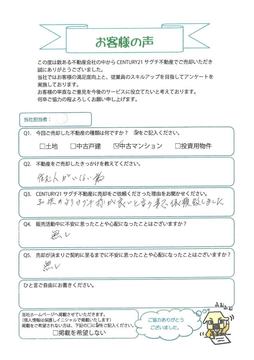 お客様の声
この度は数ある不動産会社の中からCENTURY21サグチ不動産でご売却いただき
誠にありがとうございました。
当社ではお客様の満足度向上と、従業員のスキルアップを目指してアンケートを
実施しております。
お客様の率直なご意見を今後のサービスに役立てたいと考えております。
何卒ご協力の程よろしくお願い申し上げます。
当社担当者：
Q1. 今回ご売却した不動産の種類は何ですか？ をご記入ください。
□土地 □中古戸建 ☑中古マンション □投資用物件
Q2. 不動産をご売却したきっかけを教えてください。
住む人がいない為
Q3. CENTURY21サグチ不動産に売却をご依頼くださった理由をお聞かせください。
が良いと言う事で依頼致しました
Q4. 販売活動中に不安に思ったことや心配になったことはございますか？
無し
Q5. 売却が決まりご契約に至るまでに不安に思ったことや心配になったことはございますか？
無し
ひと言ご自由にお書きください。
当社ホームページへ掲載させていただきます。
(個人情報は保護しイニシャルで掲載いたします)
掲載をご希望されない方は、下記の□をご記入ください。
□掲載を希望しない
ご協力ありがとう
ございました。